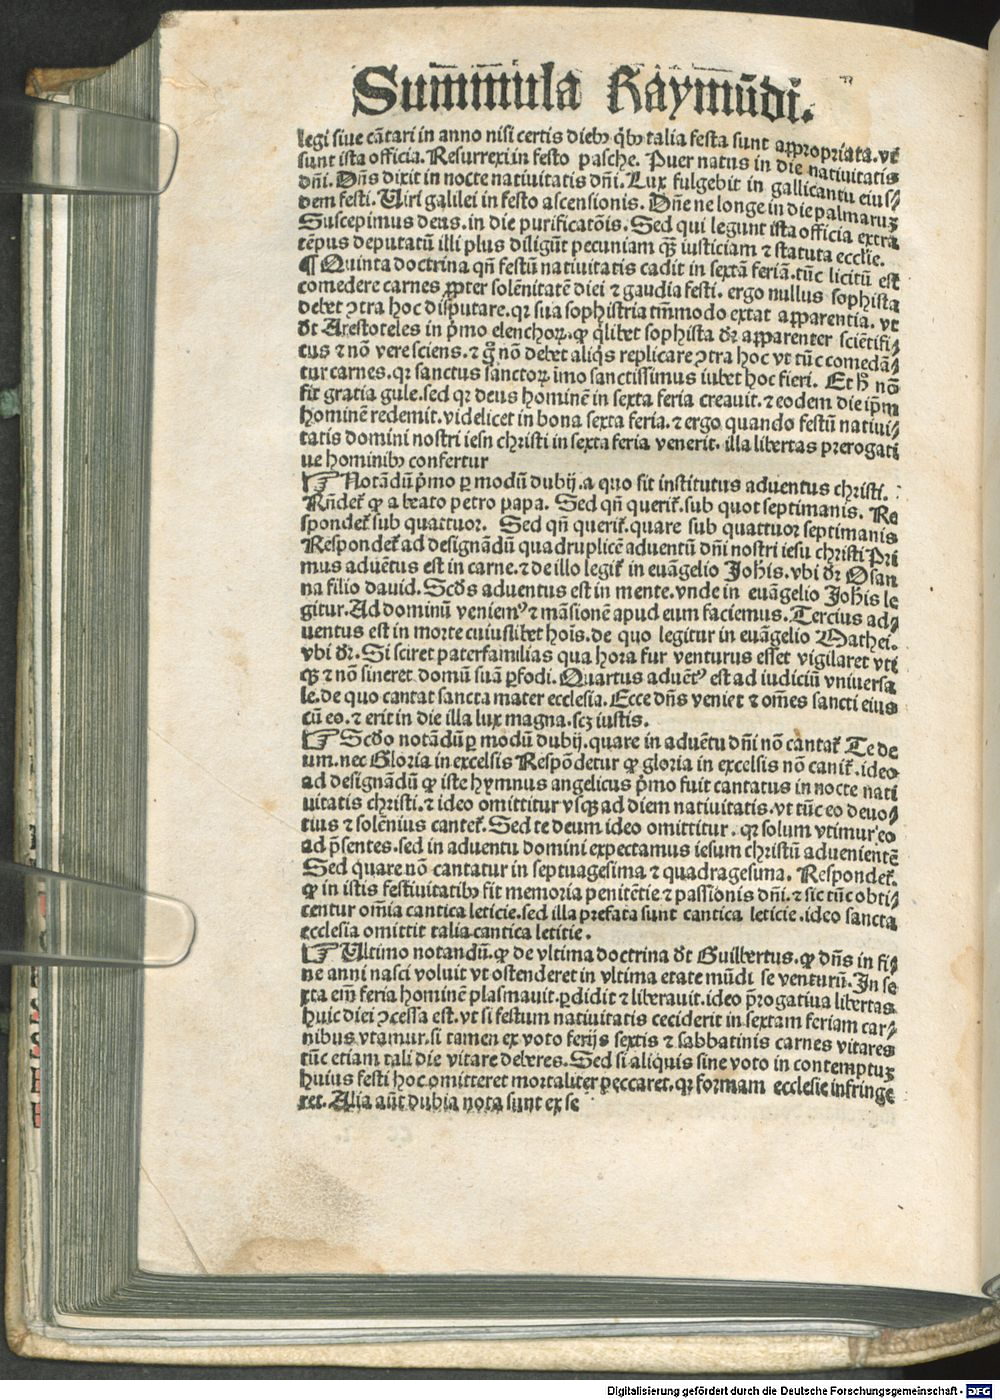 Sum̄mula Raymūdi.
legi siue cātari in anno nisi certis dieb⁹ q̄b⁹ talia festa sunt appropriata. vt
sunt ista officia. Resurrexi in festo pasche. Puer natus in die natiuitatis
dn̄i. Dn̄s dixit in nocte natiuitatis dn̄i. Lux fulgebit in gallicantu eius⸗
dem festi. Uiri galilei in festo ascensionis. Dn̄e ne longe in die palmaruꝫ
Suscepimus deus. in die purificatōis. Sed qui legunt ista officia extra
tēpus deputatū illi plus diligūt pecuniam qꝫ iusticiam ⁊ statuta ecclīe.
¶ Quinta doctrina qn̄ festū natiuitatis cadit in sextā feriā. tūc licitū est
comedere carnes ꝓpter solēnitatē diei ⁊ gaudia festi. ergo nullus sophista
debet ꝯtra hoc disputare. qꝛ sua sophistria tm̄modo extat apparentia. vt
dt̄ Arestoteles in pͥmo elenchoꝝ. ꝙ qͥlibet sophista dr̄ apparenter sciētifi⸗
cus ⁊ nō vere sciens. ⁊ gͦ nō debet aliqͥs replicare ꝯtra hoc vt tūc comedā⸗
tur carnes. qꝛ sanctus sanctoꝝ īmo sanctissimus iubet hoc fieri. Et h̄ nō
fit gratia gule. sed qꝛ deus hominē in sexta feria creauit. ⁊ eodem die ip̄m
hominē redemit. videlicet in bona sexta feria. ⁊ ergo quando festū natiui⸗
tatis domini nostri iesu christi in sexta feria venerit. illa libertas prerogati
ue hominib⁹ confertur
☞ Notādū pͥmo ꝑ modū dubij. a quo sit institutus aduentus christi.
Rn̄det̄ ꝙ a beato petro papa. Sed qn̄ querit̄. sub quot septimanis. Re
spondet̄ sub quattuor. Sed qn̄ querit̄. quare sub quattuor septimanis
Respondet̄ ad designādū quadruplicē aduentū dn̄i nostri iesu christi Pri
mus aduētus est in carne. ⁊ de illo legit̄ in euāgelio Joh̄is. vbi dr̄ Osan
na filio dauid. Scd̄s aduentus est in mente. vnde in euāgelio Joh̄is le
gitur. Ad dominū veniem⁹ ⁊ māsionē apud eum faciemus. Tercius ad⸗
uentus est in morte cuiuslibet hoīs. de quo legitur in euāgelio Mathei.
vbi dr̄. Si sciret paterfamilias qua hora fur venturus esset vigilaret vti
qꝫ ⁊ nō sineret domū suā ꝑfodi. Quartus aduēt⁹ est ad iudiciū vniuersa
le. de quo cantat sancta mater ecclesia. Ecce dn̄s veniet ⁊ om̄es sancti eius
cū eo. ⁊ erit in die illa lux magna. scꝫ iustis.
☞ Scd̄o notādū ꝑ modū dubij. quare in aduētu dn̄i nō cantat̄ Te de
um. nec Gloria in excelsis Respōdetur ꝙ gloria in excelsis nō canit̄. ideo
ad designādū ꝙ iste hymnus angelicus pͥmo fuit cantatus in nocte nati
uitatis christi. ⁊ ideo omittitur vsqꝫ ad diem natiuitatis. vt tūc eo deuo⸗
tius ⁊ solēnius cantet̄. Sed te deum ideo omittitur. qꝛ solum vtimur eo
ad p̄sentes. sed in aduentu domini expectamus iesum christū aduenientē
Sed quare nō cantatur in septuagesima ⁊ quadragesima. Respondet̄.
ꝙ in istis festiuitatib⁹ fit memoria penitētie ⁊ passionis dn̄i. ⁊ sic tūc obti⸗
centur om̄ia cantica leticie. sed illa prefata sunt cantica leticie. ideo sancta
ecclesia omittit talia cantica letitie.
☞ Ultimo notandū. ꝙ de vltima doctrina dt̄ Guilbertus. ꝙ dn̄s in fi⸗
ne anni nasci voluit vt ostenderet in vltima etate mūdi se venturū. In se
xta em̄ feria hominē plasmauit. ꝑdidit ⁊ liberauit. ideo p̄rogatiua libertas
huic diei ꝯcessa est. vt si festum natiuitatis ceciderit in sextam feriam car⸗
nibus vtamur. si tamen ex voto ferijs sextis ⁊ sabbatinis carnes vitares
tūc etiam tali die vitare deberes. Sed si aliquis sine voto in contemptuꝫ
huius festi hoc omitteret mortaliter peccaret. qꝛ formam ecclesie infringe
ret. Alia aūt dubia nota sunt ex se
Digitalisierung gefördert durch die Deutsche Forschungsgemeinschaft - DFG